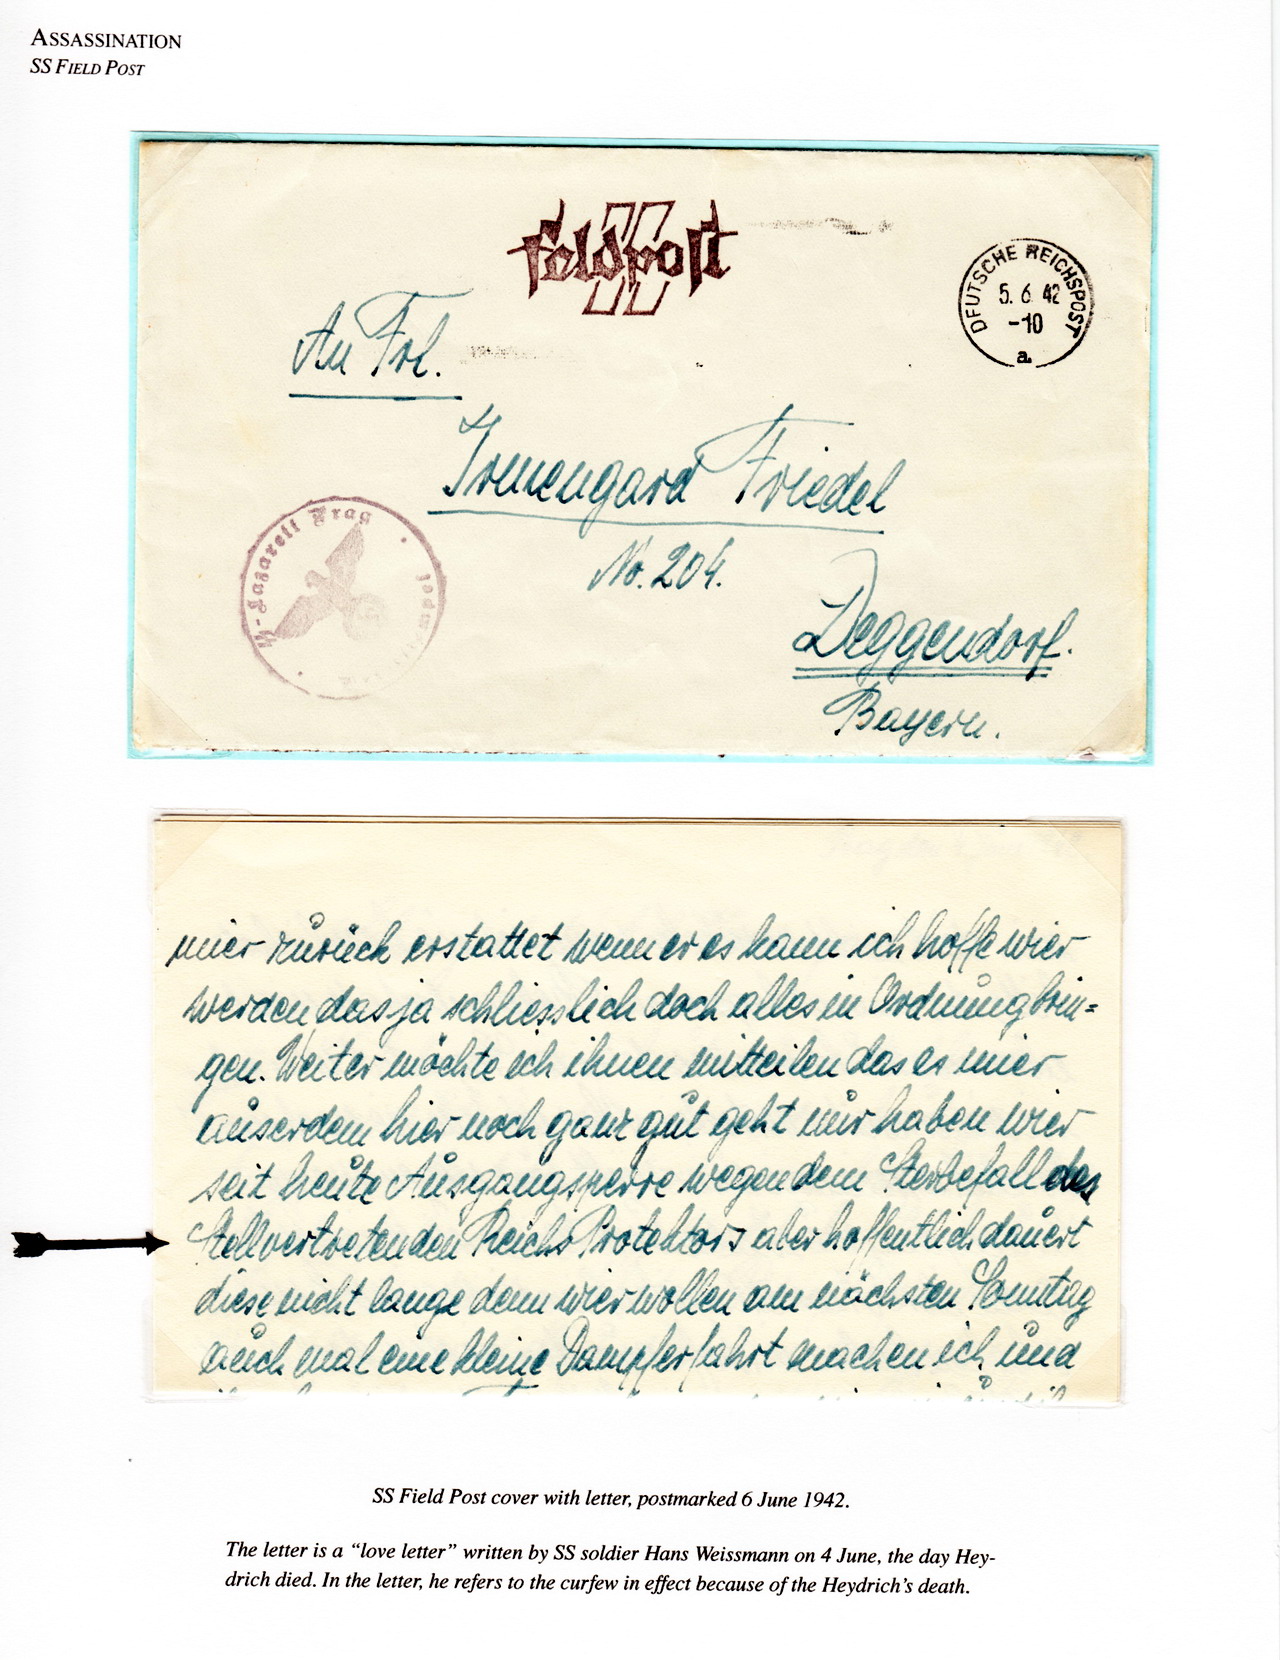 ASSASSINATION
SS FIELD POST
Feldpost
DEUTSCHE REICHSPOST
5. 6. 42
-10
a
An Frl.
Irmengard Friedel
No. 204.
Deggendorf.
Bayern.
SS-Lazarett Prag
mier zurück erstattet wenn er es kann ich hoffe wier
werden das ja schliesslich doch alles in Ordnung brin=
gen. Weiter möchte ich ihnen mitteilen das es mier
auserdem hier noch ganz gut geht nur haben wier
seit heute Ausgangsperre wegen dem Sterbefall des
Stellvertretenden Reichs Protektors aber hoffentlich dauert
diese nicht lange denn wier wollen am nächsten Sonntag
auch mal eine kleine Dampferfahrt machen ich und
SS Field Post cover with letter, postmarked 6 June 1942.
The letter is a “love letter” written by SS soldier Hans Weissmann on 4 June, the day Hey-
drich died. In the letter, he refers to the curfew in effect because of the Heydrich’s death.